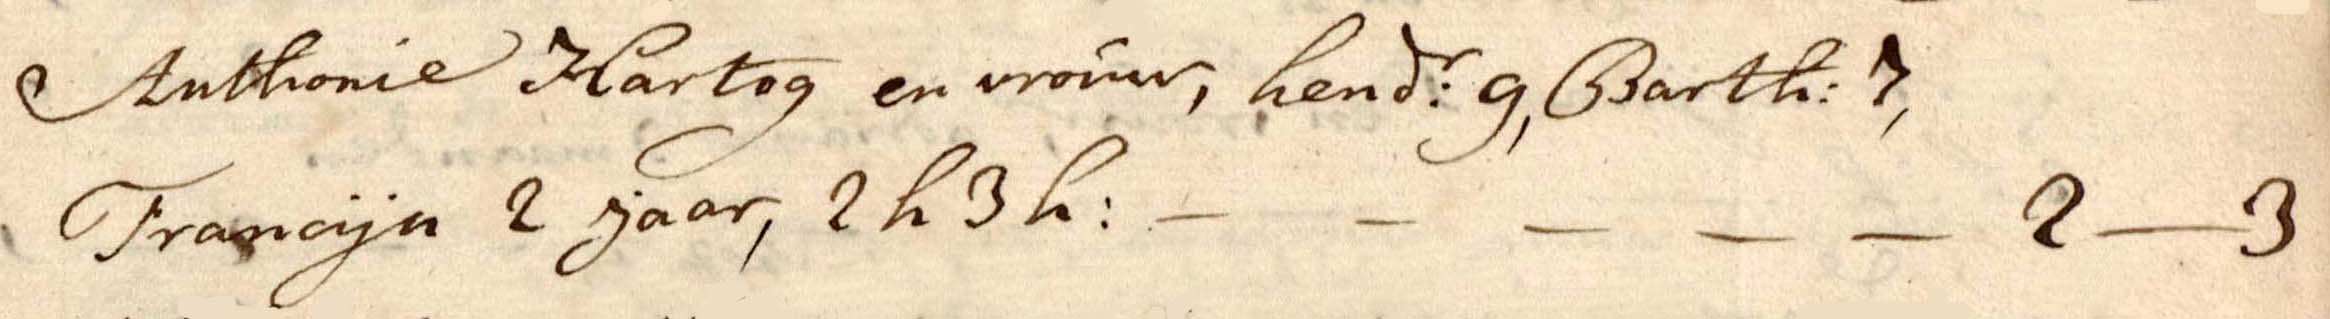 Anthonie Hartog en vrouw, hendr: 9, Barth: 7,
Francijn 2 jaar, 2 h 3 h: — — — — — 2 — 3